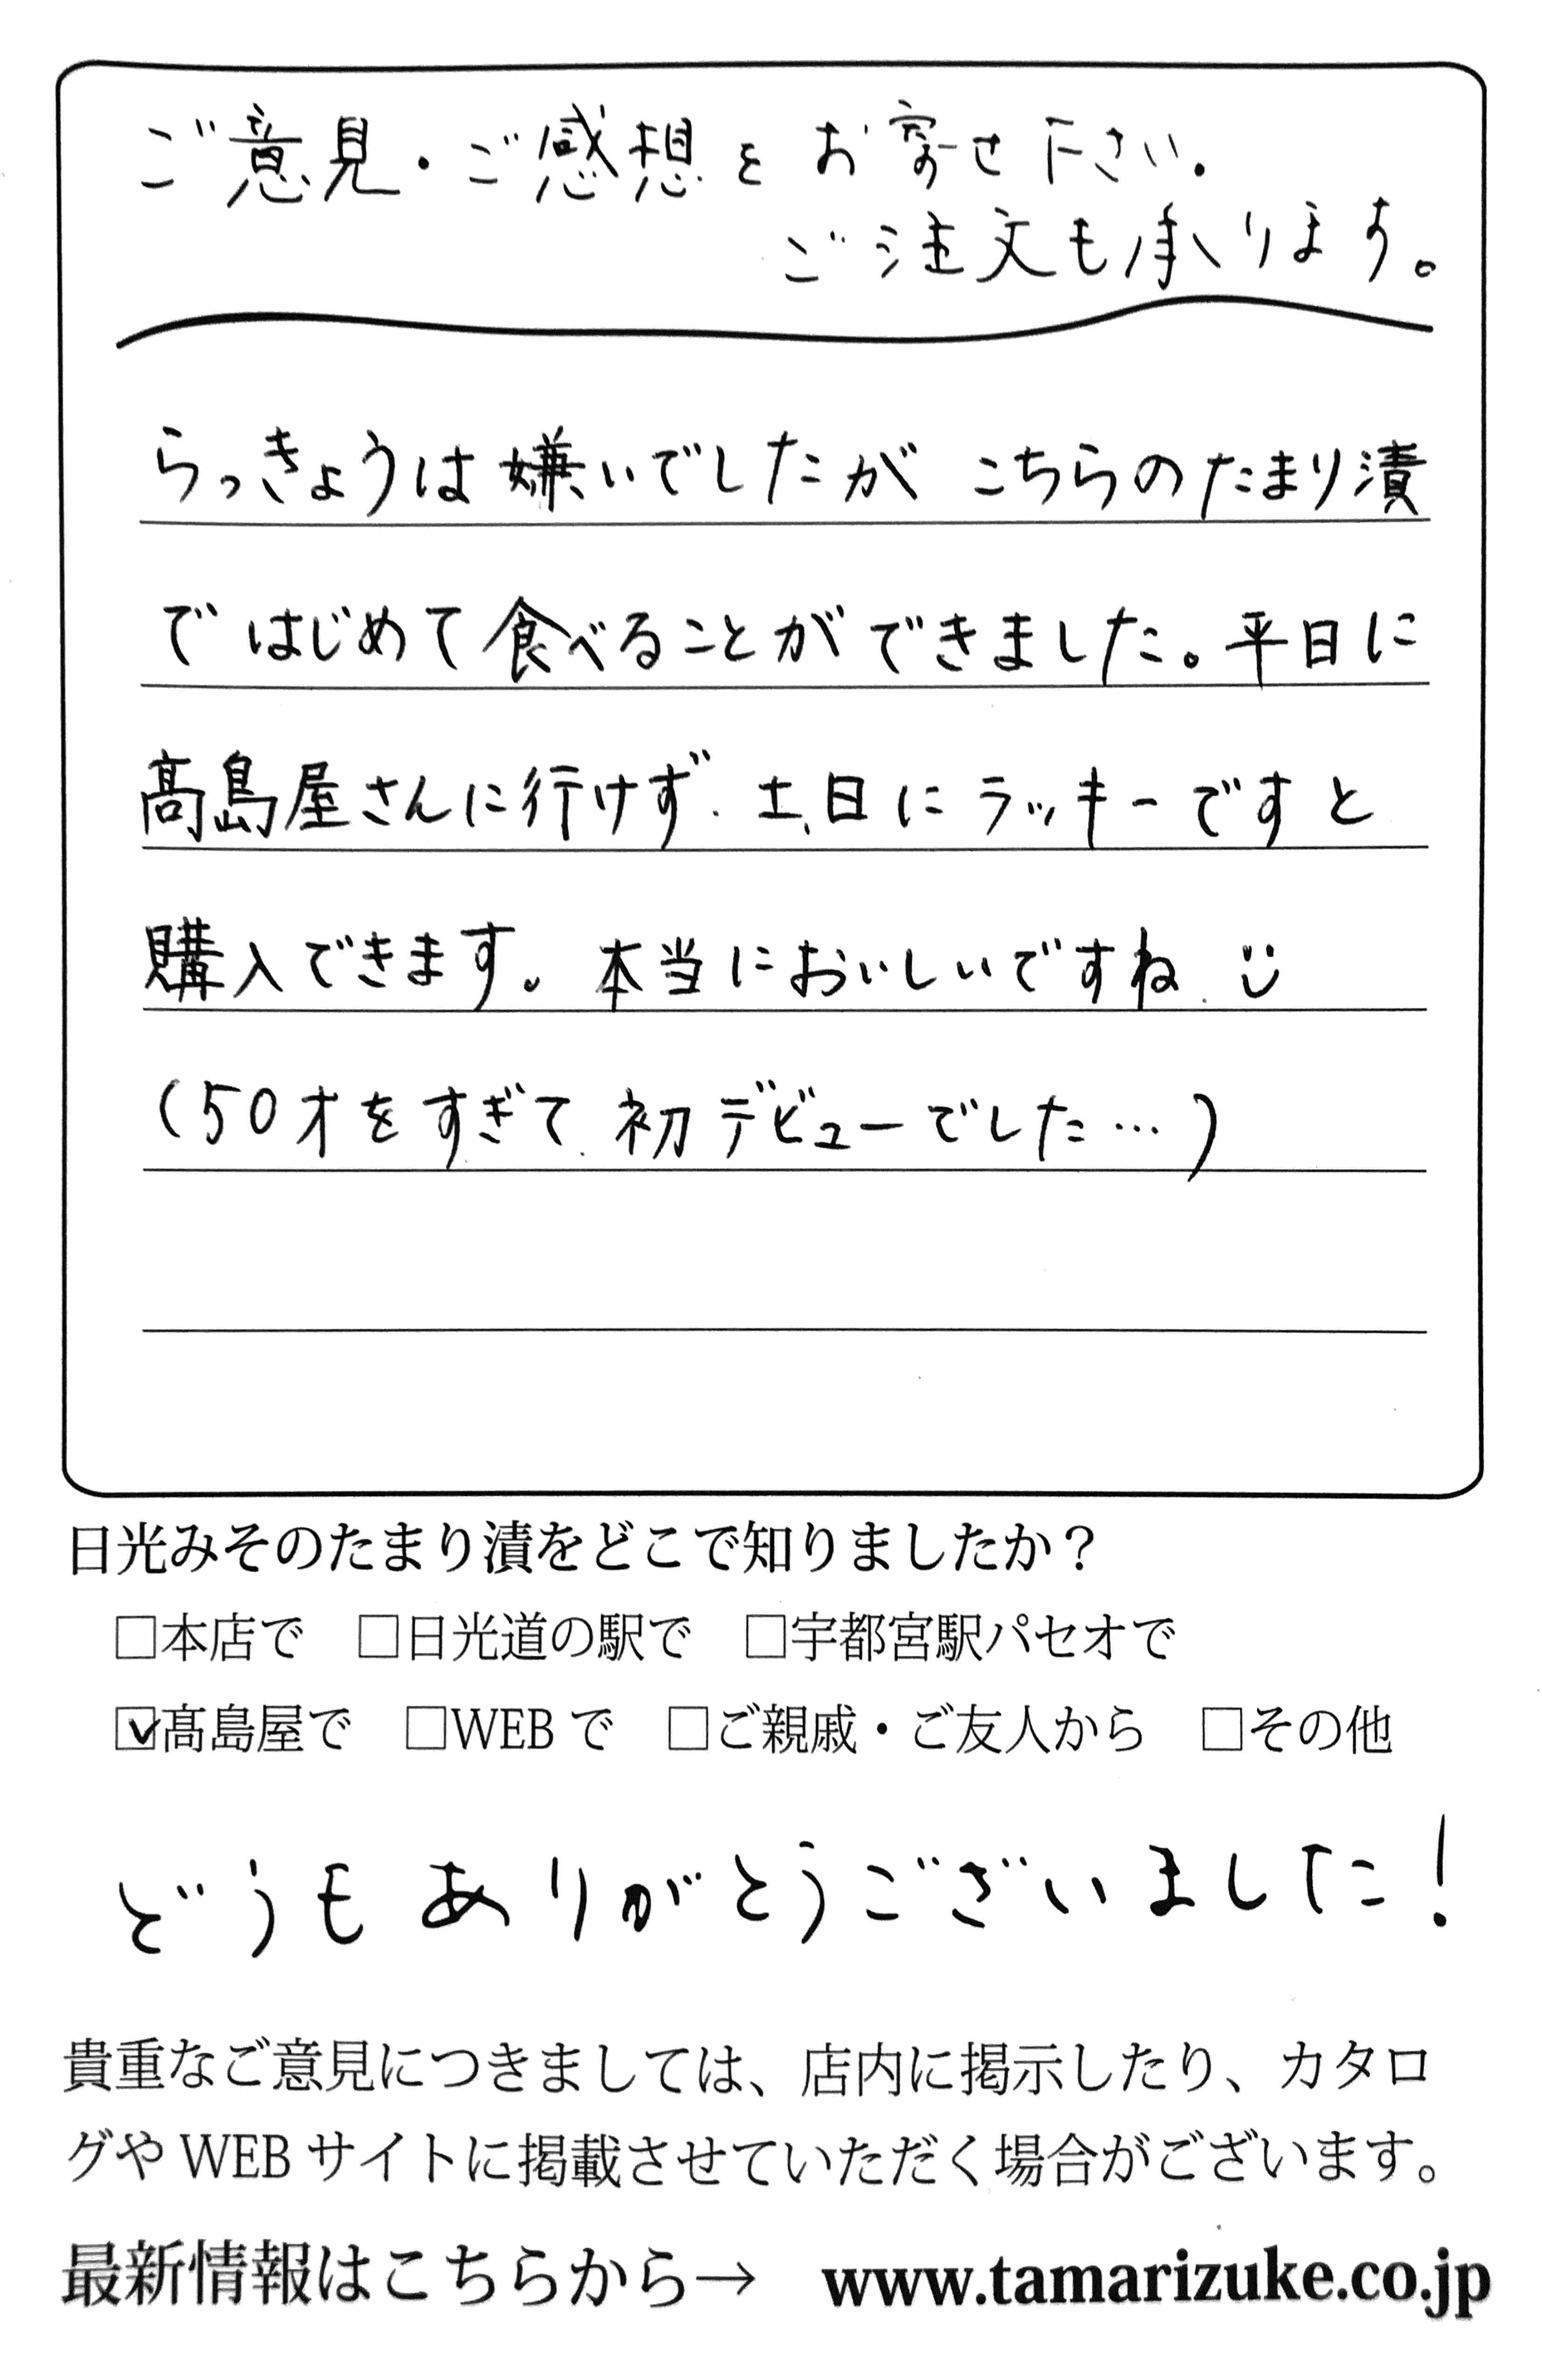 ご意見・ご感想をお寄せ下さい。
ご注文も承ります。
らっきょうは嫌いでしたが こちらのたまり漬
で はじめて食べることができました。平日に
髙島屋さんに行けず、土、日に ラッキーですと
購入できます。本当においしいですね。
(50才をすぎて、初デビューでした…)
日光みそのたまり漬をどこで知りましたか？
□本店で □日光道の駅で □宇都宮駅パセオで
☑髙島屋で □WEBで □ご親戚・ご友人から □その他
どうもありがとうございました！
貴重なご意見につきましては、店内に掲示したり、カタロ
グやWEBサイトに掲載させていただく場合がございます。
最新情報はこちらから→ www.tamarizuke.co.jp